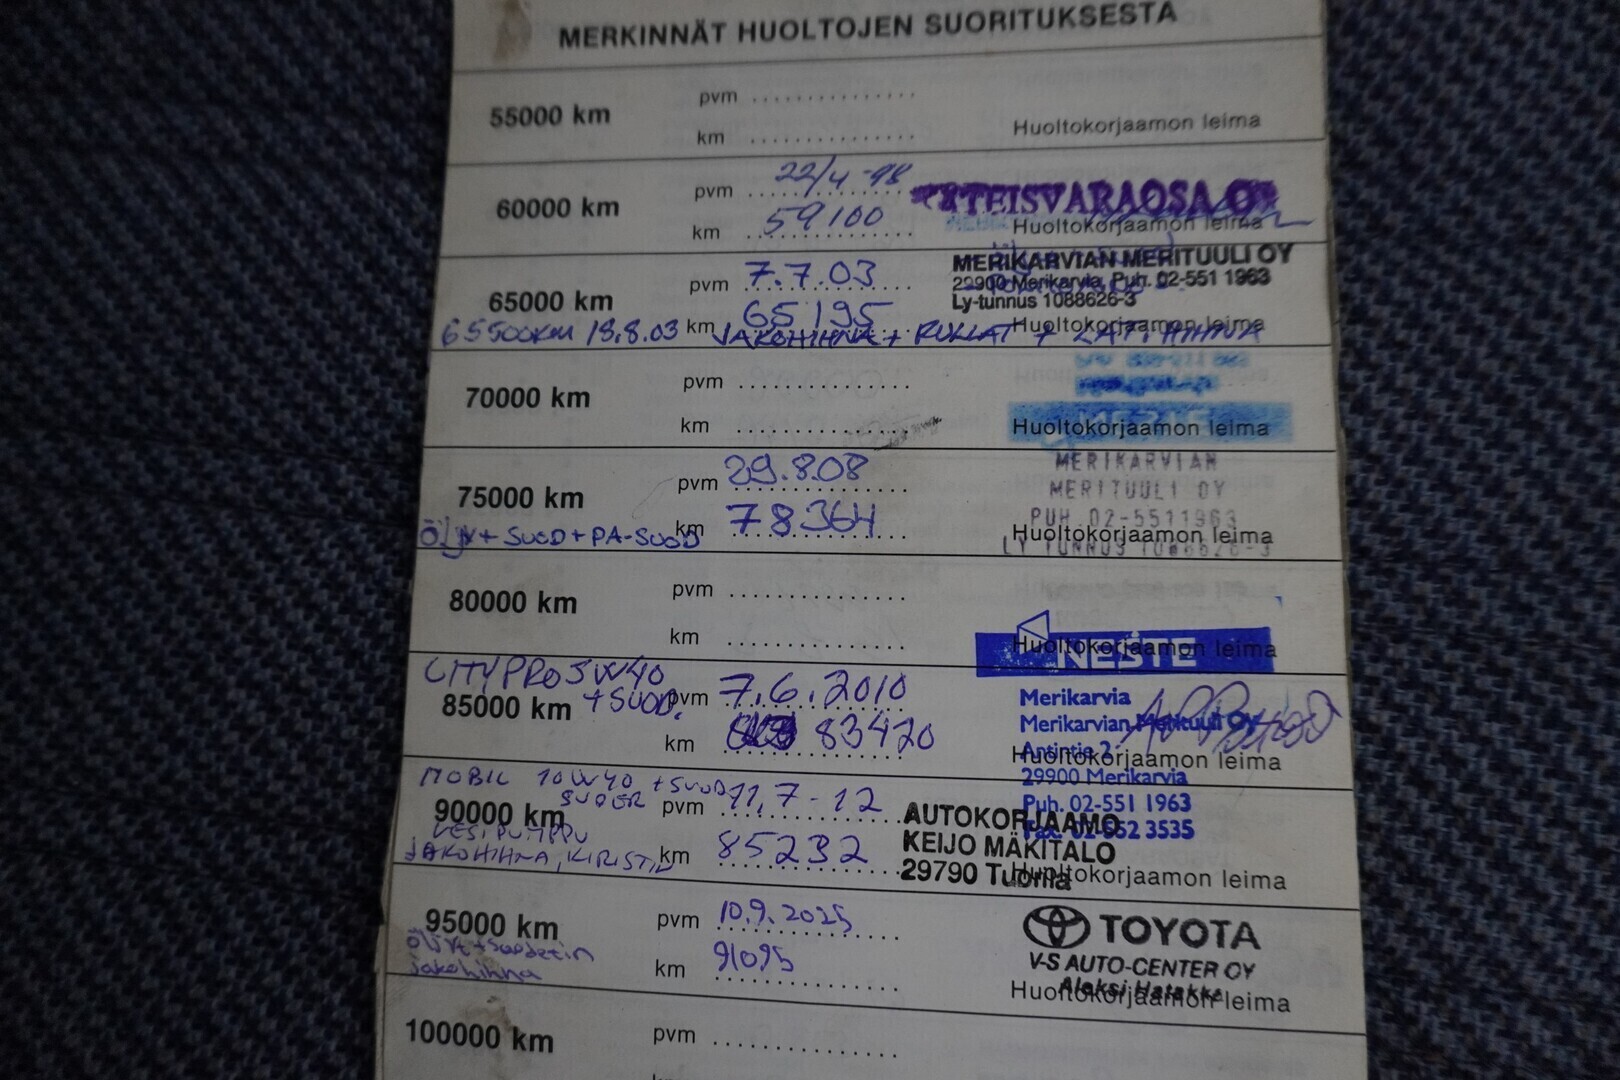 MERKINNÄT HUOLTOJEN SUORITUKSESTA
55000 km
pvm
km
Huoltokorjaamon leima
60000 km
pvm 22/4 -98
km 59100
YTEISVARAOSA OY
Huoltokorjaamon leima
65000 km
pvm 7.7.03
km 65195
MERIKARVIAN MERITUULI OY
29900 Merikarvia, Puh. 02-551 1963
Ly-tunnus 1088626-3
Huoltokorjaamon leima
65500KM 18.8.03 JAKOHIHNA + RULLAT + LAT. HIHNA
70000 km
pvm
km
Huoltokorjaamon leima
75000 km
pvm 29.8.08
km 78364
ÖLJY + SUOD + PA-SUOD
MERIKARVIAN
MERITUULI OY
PUH. 02-5511963
LY TUNNUS 1088626-3
Huoltokorjaamon leima
80000 km
pvm
km
NESTE
Huoltokorjaamon leima
CITYPRO 5W40
+ SUOD.
85000 km
pvm 7.6.2010
km 83420
Merikarvia
Merikarvian Merituuli OY
Antintie 2
29900 Merikarvia
Puh. 02-551 1963
Fax. 02-552 3535
Huoltokorjaamon leima
MOBIL 10W40 + SUOD
SUPER
90000 km
VESIPUMPPU
JAKOHIHNA, KIRIST,
pvm 11.7-12
km 85232
AUTOKORJAAMO
KEIJO MÄKITALO
29790 Tuorila
Huoltokorjaamon leima
95000 km
öljyt + suodatin
jakohihna
pvm 10.9.2025
km 91095
TOYOTA
V-S AUTO-CENTER OY
Aleksi Hatakka
Huoltokorjaamon leima
100000 km
pvm